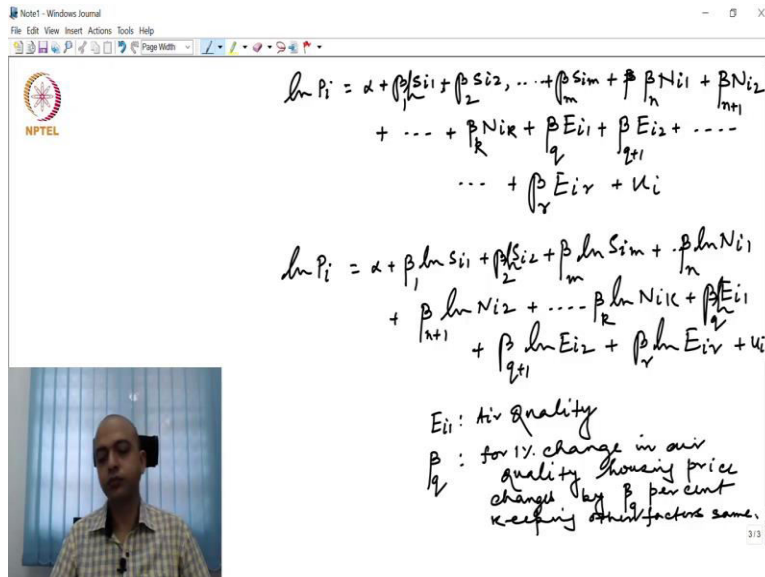 Note1 - Windows Journal
File Edit View Insert Actions Tools Help
Page Width
NPTEL
ln Pi = α + β₁ Si1 + β₂ Si2, ... + βm Sim + β βn Ni1 + βn+1 Ni2
+ ... + βk Nik + βq Ei1 + βq+1 Ei2 + ....
... + βr Eir + ui
ln Pi = α + β₁ ln Si1 + β₂ ln Si2 + βm ln Sim + . βn ln Ni1
+ βn+1 ln Ni2 + .... βk ln Nik + βq ln Ei1
+ βq+1 ln Ei2 + βr ln Eir + ui
Ei1 : Air Quality
βq : for 1% change in air
quality housing price
changes by βq percent
keeping other factors same.
3/3